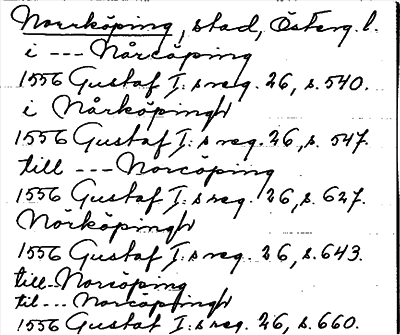 Norrköping, stad, Österg. l.
i --- Nårcöping
1556 Gustaf I:s reg. 26, s. 540.
i Nårköpingh
1556 Gustaf I:s reg. 26, s. 547.
till --- Norcöping
1556 Gustaf I:s reg. 26, s. 627.
Nörköpingh
1556 Gustaf I:s reg. 26, s. 643.
till Norcöping
til --- Norcöpingh
1556 Gustaf I:s reg. 26, s. 660.